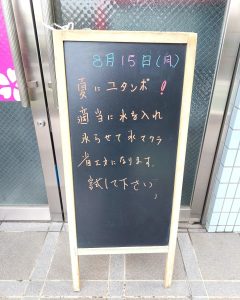 8月15日(月)
夏にユタンポ!
適当に水を入れ
氷らせて氷マクラ
省エネになります。
試して下さい。